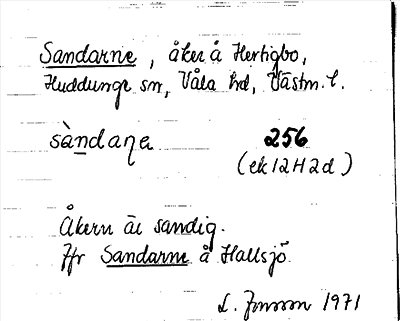 Sandarne, åker å Hertigbo,
Huddunge sn, Våla hd, Västm. l.
sàndaɳa 256
(ek 12H2d)
Åkern är sandig.
Jfr Sandarne å Hallsjö.
L. Jonsson 1971